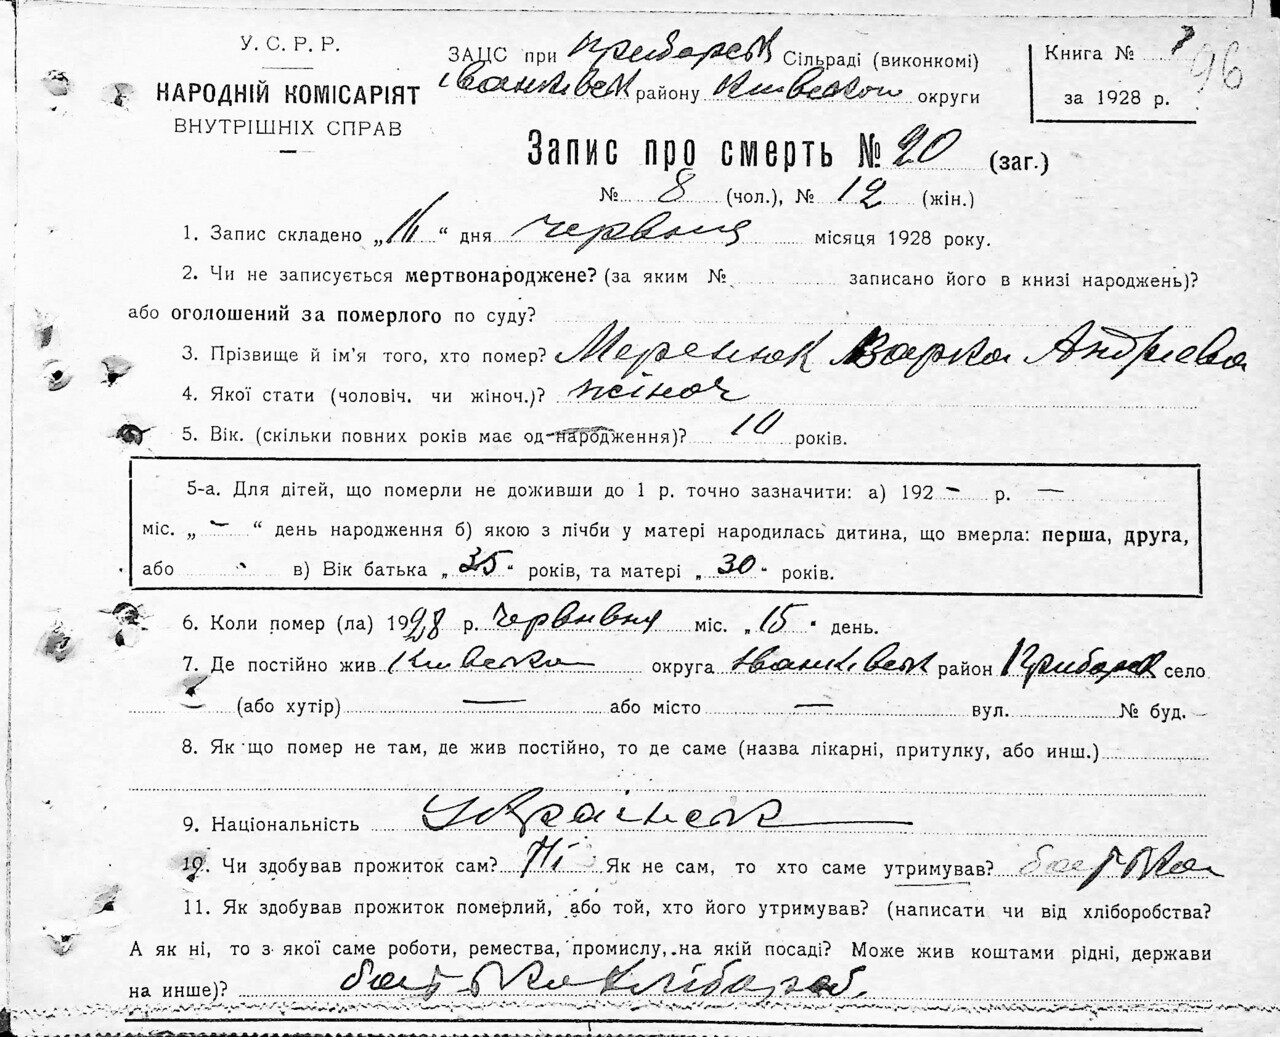 У. С. Р. Р.
НАРОДНІЙ КОМІСАРІЯТ
ВНУТРІШНІХ СПРАВ
ЗАЦС при Прибарськ Сільраді (виконкомі)
Іванківськ району Київської округи
Книга № 7
96
за 1928 р.
Запис про смерть № 20 (заг.)
№ 8 (чол.), № 12 (жін.)
1. Запис складено „16“ дня червня місяця 1928 року.
2. Чи не записується мертвонароджене? (за яким № записано його в книзі народжень)?
або оголошений за померлого по суду?
3. Прізвище й ім'я того, хто помер? Меренюк Варка Андрієва
4. Якої стати (чоловіч. чи жіноч.)? жіноч
5. Вік. (скільки повних років має од народження)? 10 років.
5-а. Для дітей, що померли не доживши до 1 р. точно зазначити: а) 192 – р. —
міс. „ – “ день народження б) якою з лічби у матері народилась дитина, що вмерла: перша, друга,
або в) Вік батька „ 35 “ років, та матері „ 30 “ років.
6. Коли помер (ла) 1928 р. червивня міс. „ 15 “ день.
7. Де постійно жив Київська округа Іванківськ район Прибарськ село
– (або хутір) — або місто — вул. № буд. –
8. Як що помер не там, де жив постійно, то де саме (назва лікарні, притулку, або инш.)
9. Національність Українськ
10. Чи здобував прожиток сам? Ні Як не сам, то хто саме утримував? батько
11. Як здобував прожиток померлий, або той, хто його утримував? (написати чи від хліборобства?
А як ні, то з якої саме роботи, ремества, промислу, на якій посаді? Може жив коштами рідні, держави
на инше)? батько хлібороб.